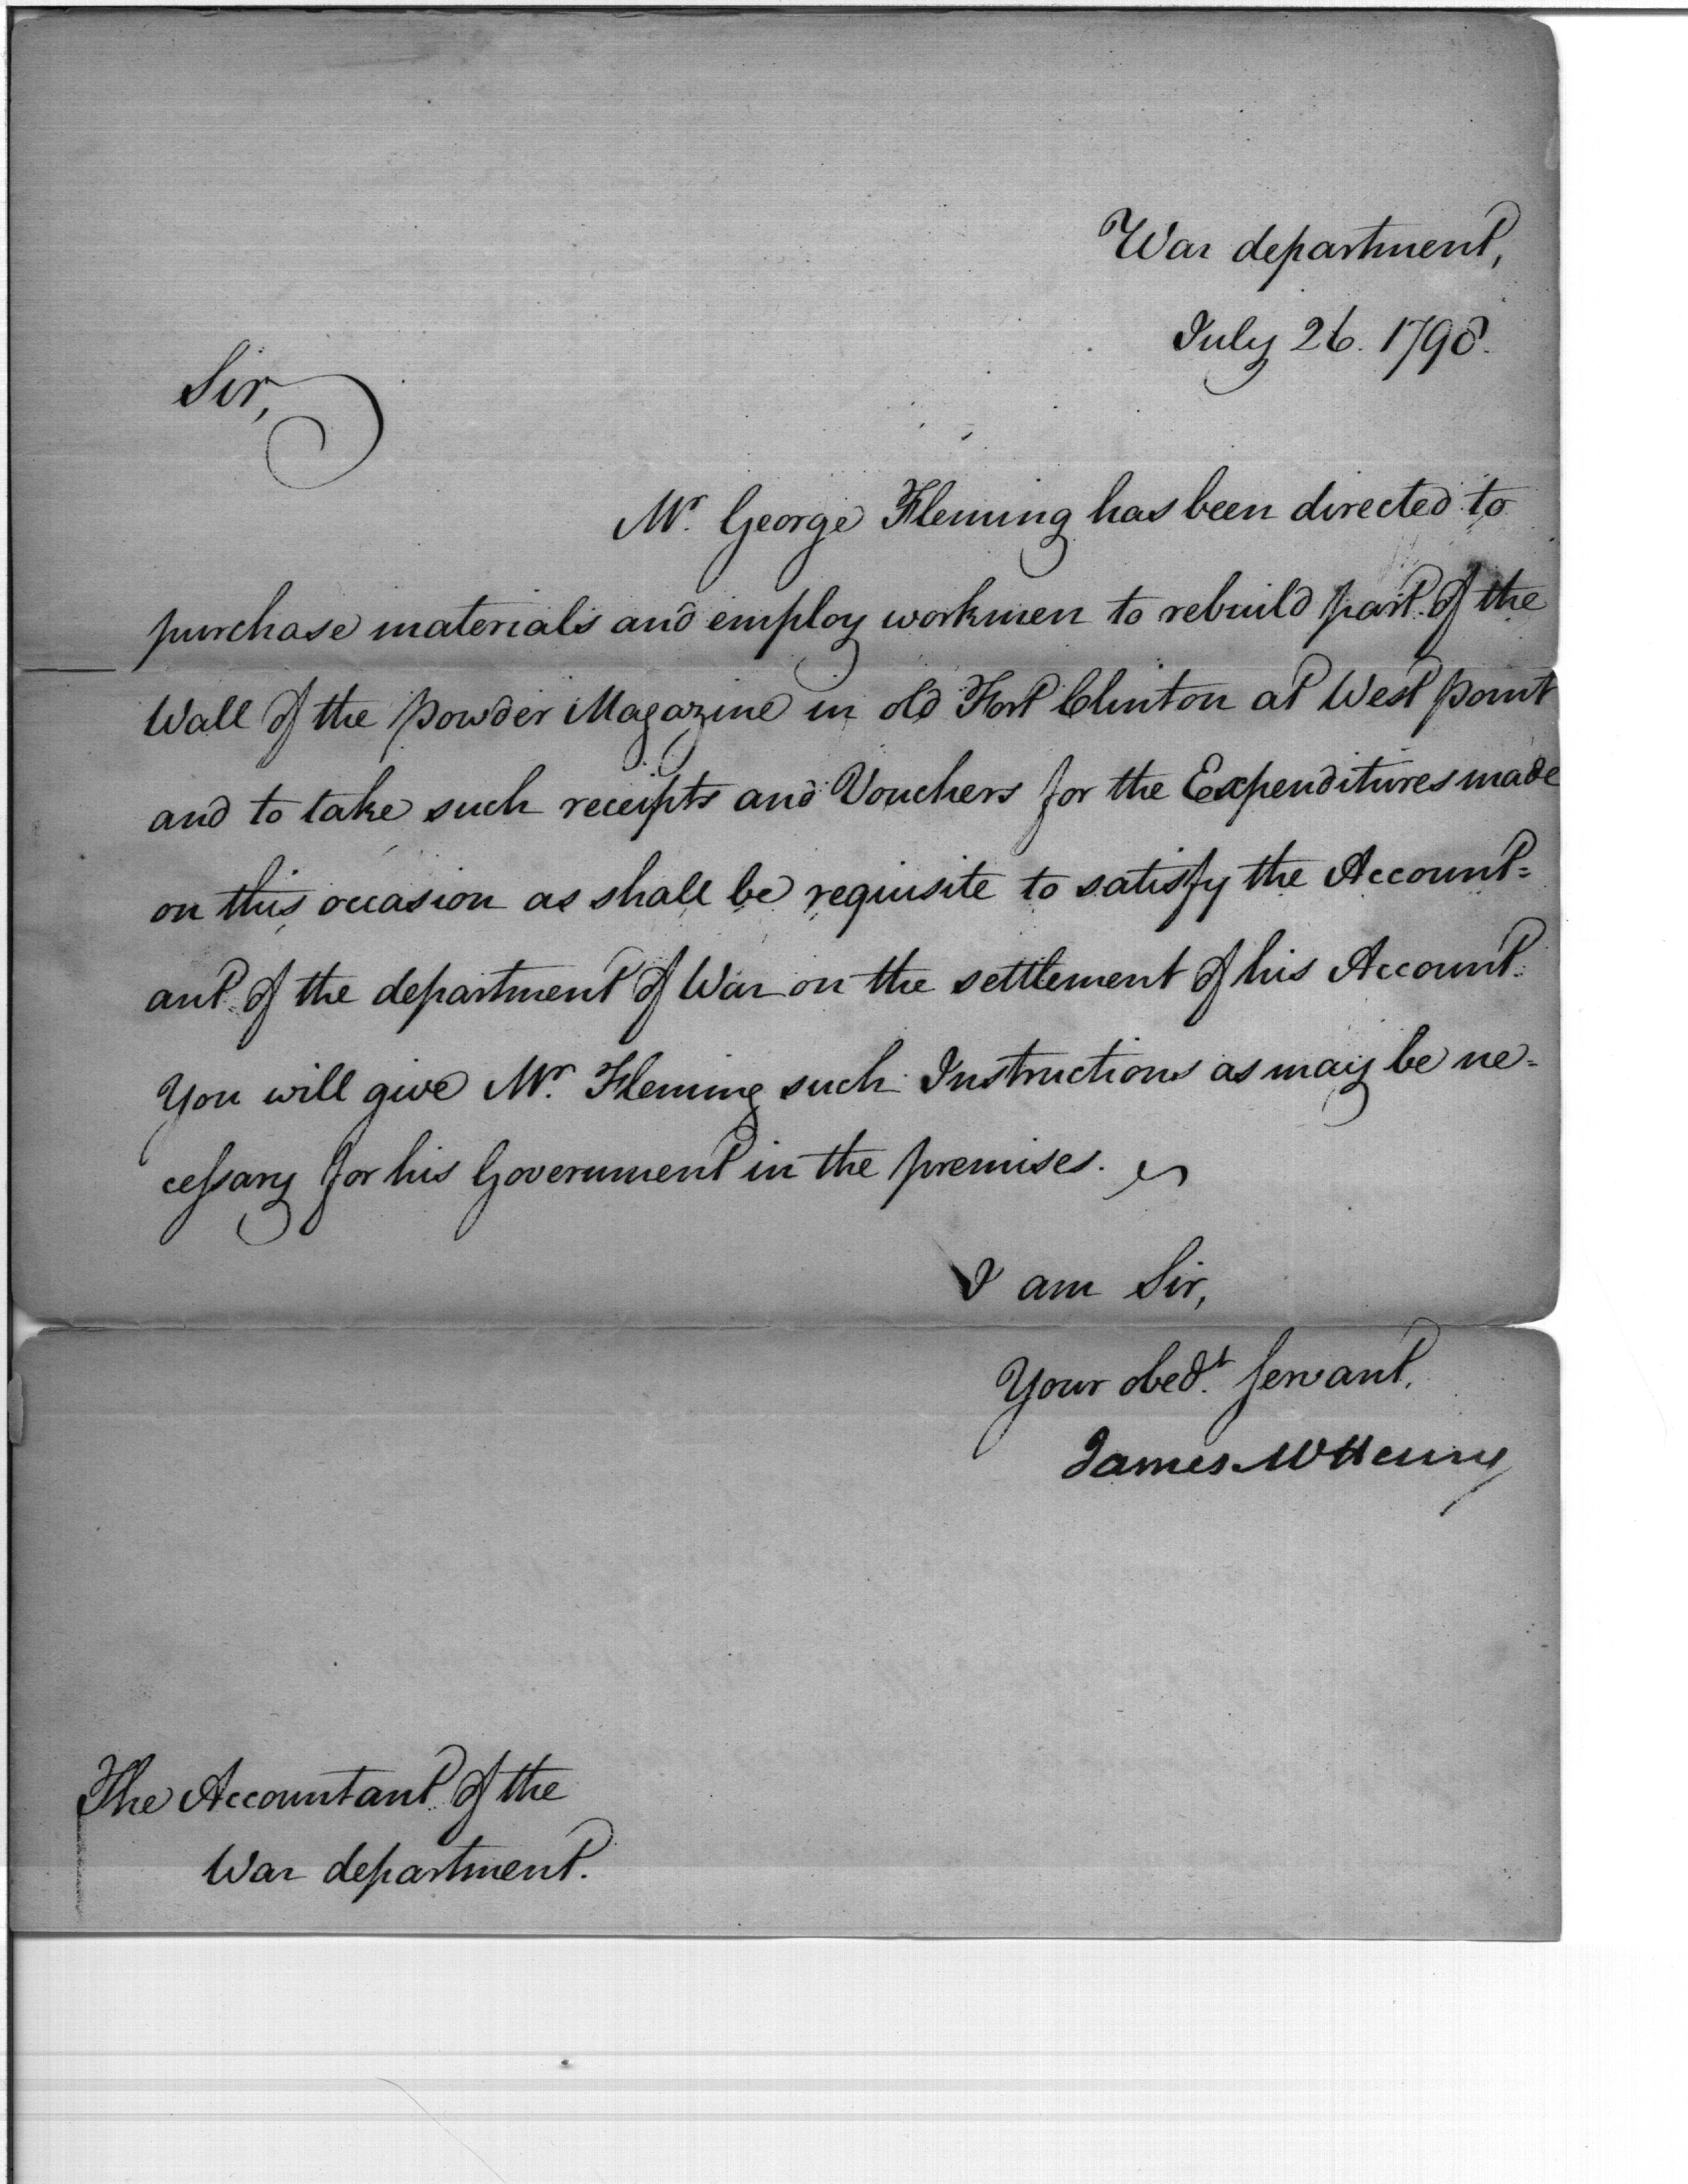 War department,
July 26. 1798.
Sir,
Mr. George Fleming has been directed to
purchase materials and employ workmen to rebuild part of the
Wall of the powder Magazine in old Fort Clinton at West point
and to take such receipts and Vouchers for the Expenditures made
on this occasion as shall be requisite to satisfy the Account=
ant of the department of War on the settlement of his Account.
You will give Mr. Fleming such Instructions as may be ne=
cessary for his Government in the premises.
I am Sir,
Your obedt. servant.
James McHenry
The Accountant of the
War department.